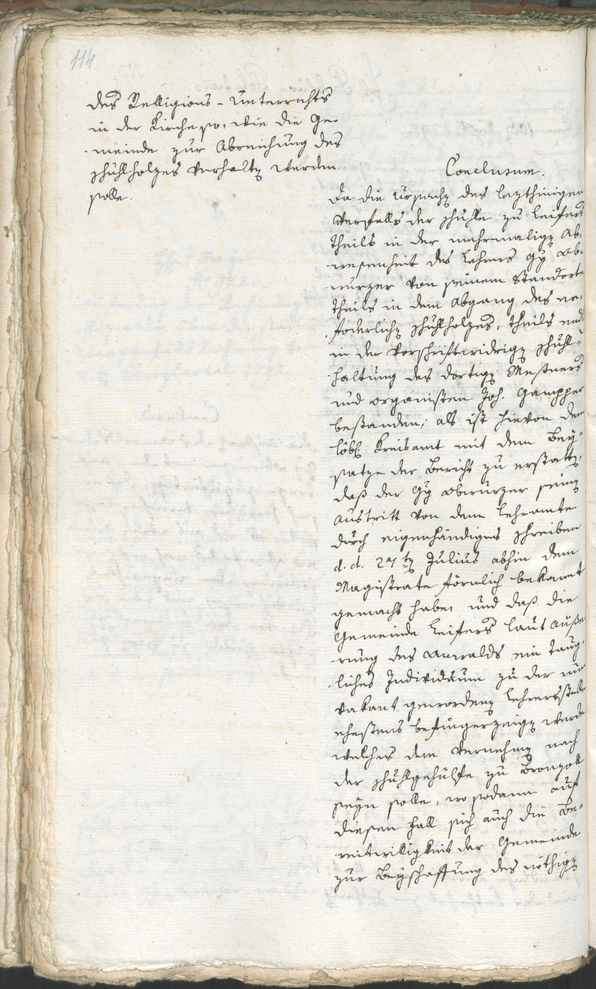 114
des Religions-Unterrichts
in der Kirche so, wie die Ge-
meinde zur Abreichung des
Schuhlholzes verhaltn werden
solle.
Conclusum.
Da die Ursache des letzthinigen
Verfalls der Schuhle zu Leifers
theils in der mehrmaligen Ab-
wesenheit des Lehrers
von seinem Standorte
theils in dem Abgang des
Schuhlholzes, theils und
in der vorschriftwidrigen Schuhl-
haltung des dortigen Meßners
und Organisten Joh. Gamper
bestanden; als ist hievon dem
löbl. Kreisamt mit dem Bey-
satze der Bericht zu erstatten,
daß der seinen
Austritt von dem Lehramte
durch eigenhändiges Schreiben
d. d. 27ten Julius abhin dem
Magistrate förmlich bekannt
gemacht habe, und daß die
Gemeinde Leifers laut Äuße-
rung des Anwalds ein taug-
liches Individuum zu der nun
vakant gewordenen Lehrersstelle
ehestens werde
welches dem Vernehmen nach
der Schuhlgehülfe zu Bronzoll
seyn solle, wo sodann auf
diesen Fall sich auch die Be-
reitwilligkeit der Gemeinde
zur Beyschaffung des nöthigen